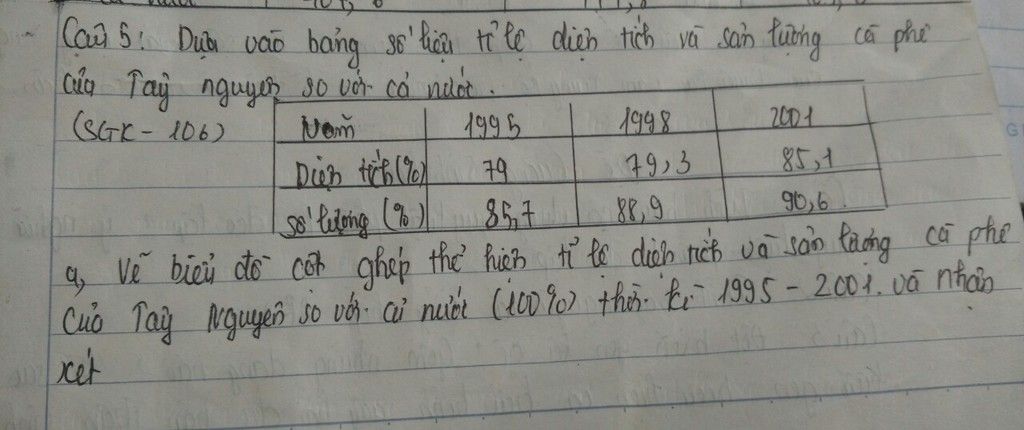 Câu 5: Dựa vào bảng số liệu tỉ lệ diện tích và sản lượng cà phê
của Tây nguyên so với cả nước.
(SGK - 106)
Năm 1995 1998 2001
Diện tích (%) 79 79,3 85,1
số lượng (%) 85,7 88,9 90,6
a, Vẽ biểu đồ cột ghép thể hiện tỉ lệ diện tích và sản lượng cà phê
của Tây Nguyên so với cả nước (100%) thời kì 1995 - 2001. và nhận
xét